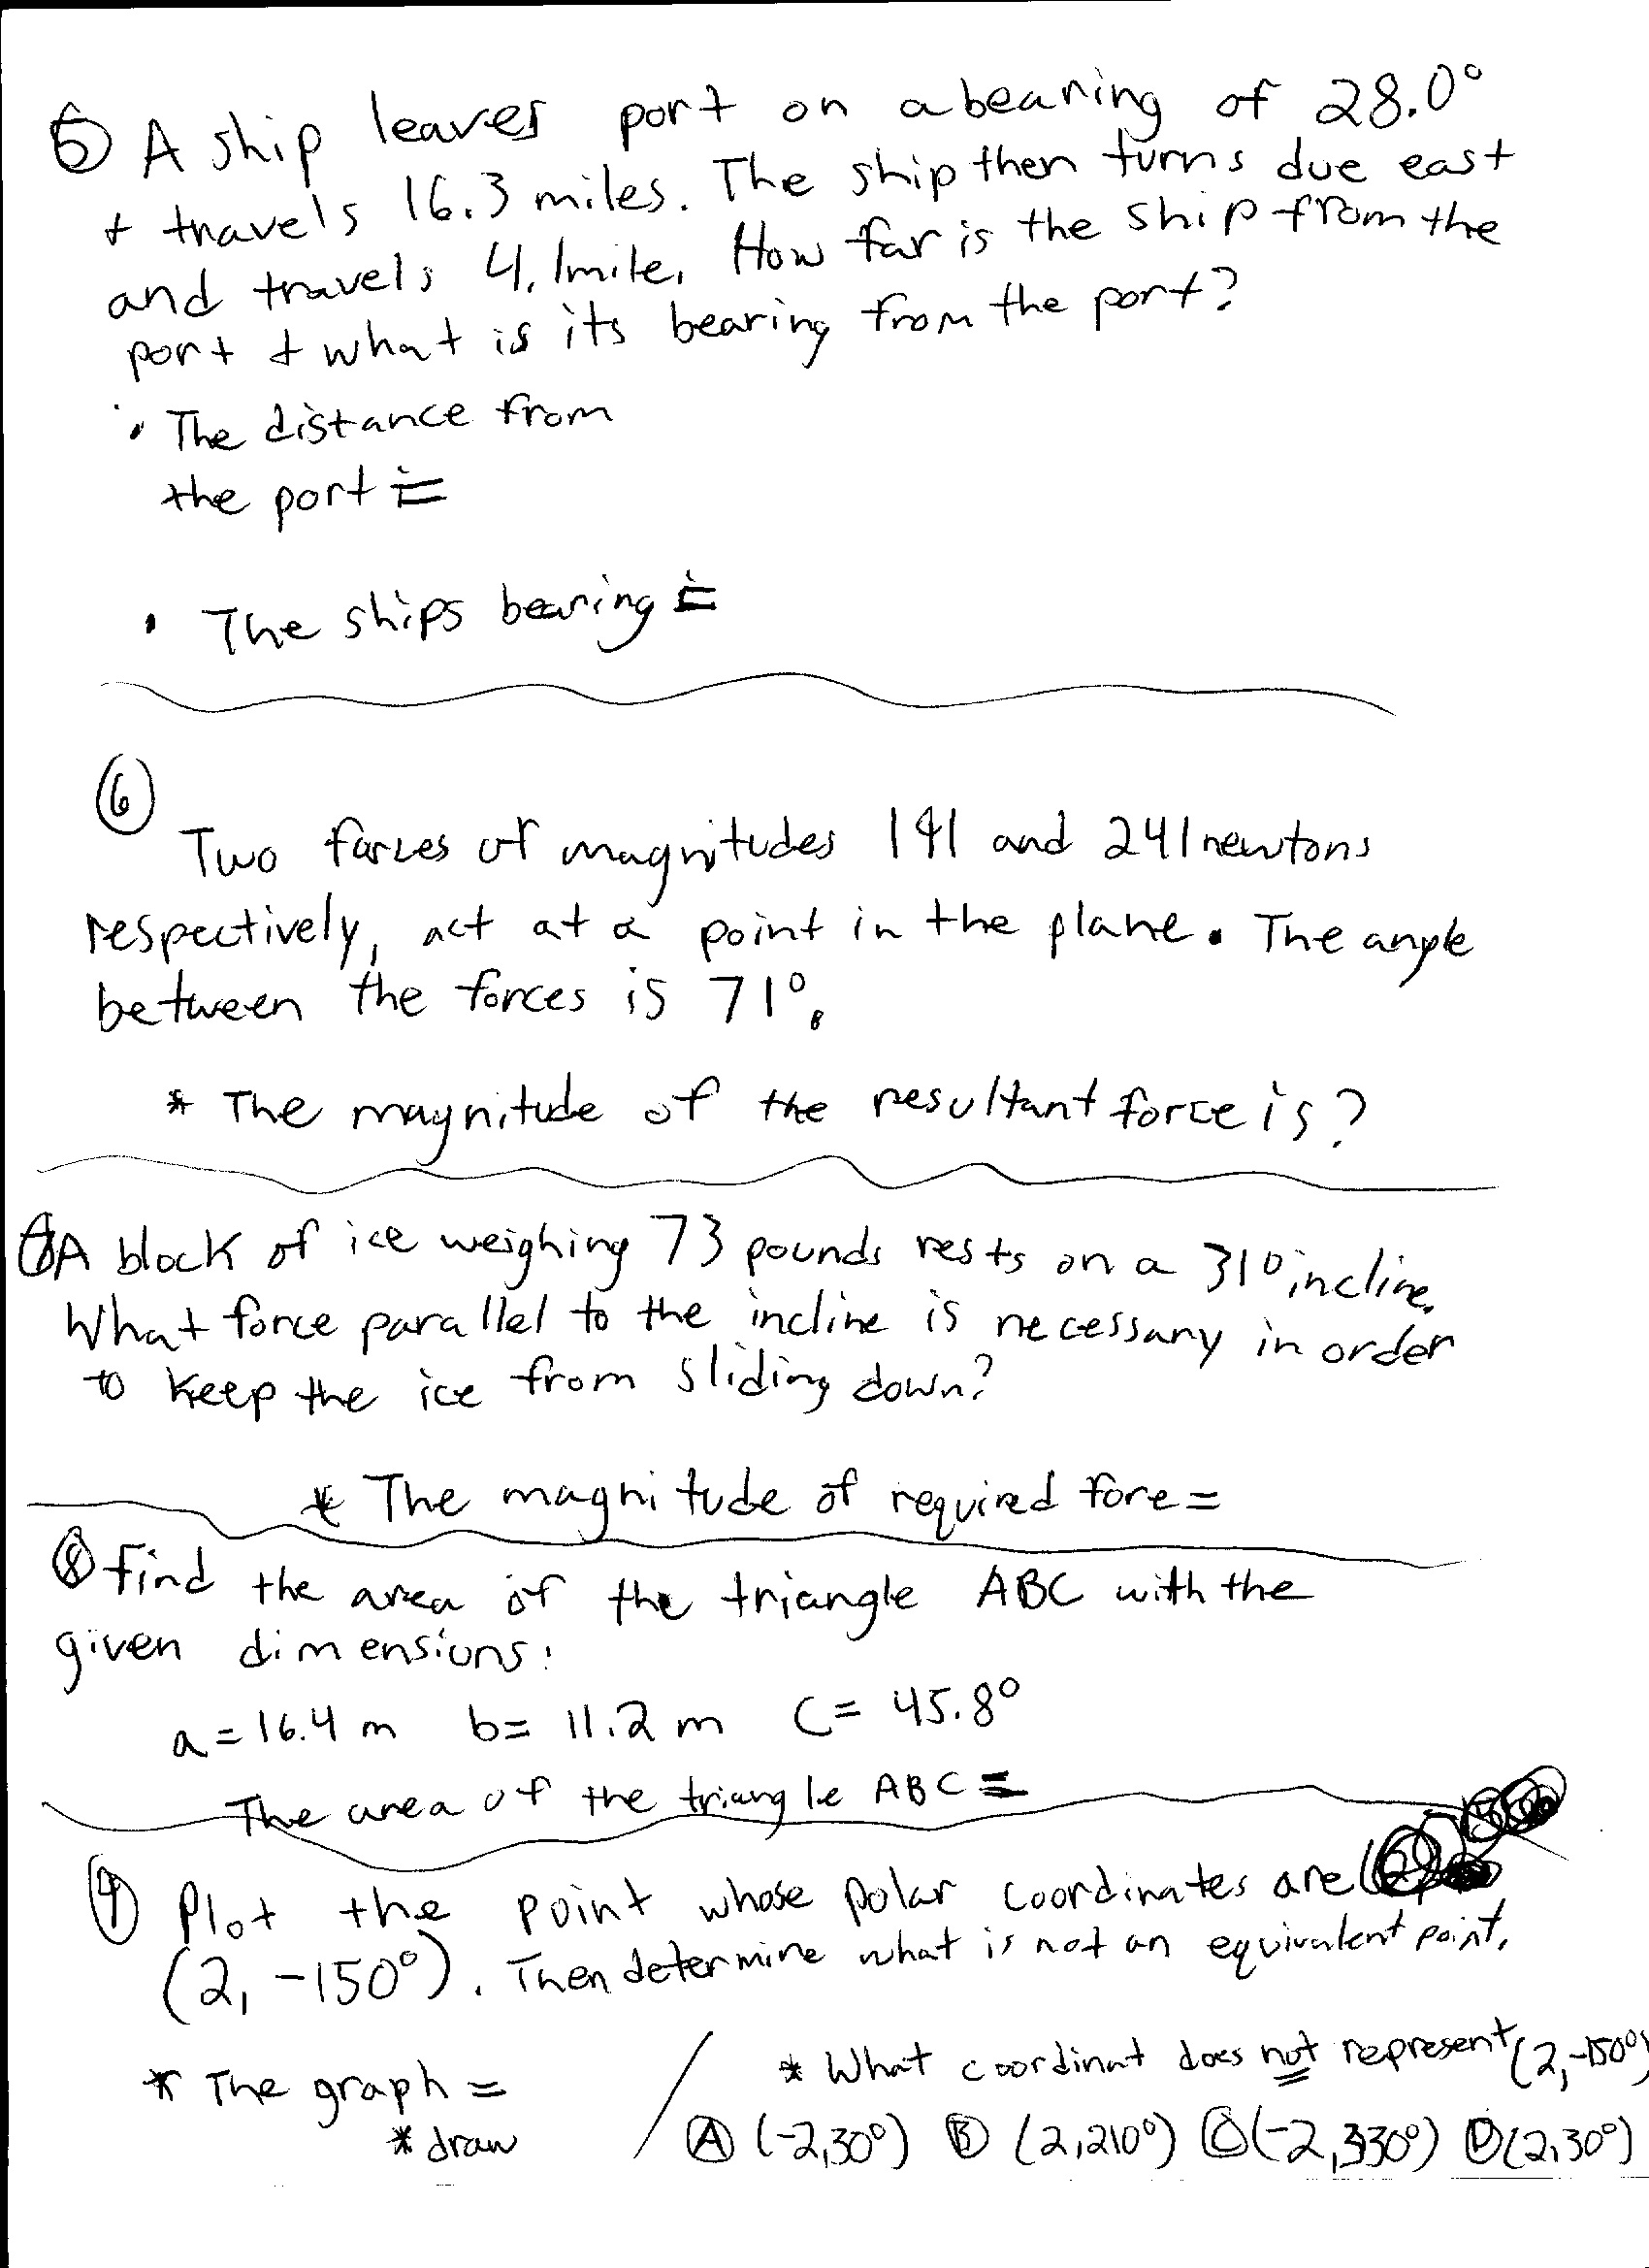 ⑤ A ship leaves port on a bearing of 28.0°
+ travels 16.3 miles. The ship then turns due east
and travels 4.1mile. How far is the ship from the
port + what is its bearing from the port?
• The distance from
the port =
• The ships bearing =
⑥
Two forces of magnitudes 141 and 241 newtons
respectively, act at a point in the plane. The angle
between the forces is 71°.
* The magnitude of the resultant force is?
⑦ A block of ice weighing 73 pounds rests on a 31° incline.
What force parallel to the incline is necessary in order
to keep the ice from sliding down?
* The magnitude of required fore =
⑧ find the area of the triangle ABC with the
given dimensions:
a = 16.4 m b = 11.2 m C = 45.8°
The area of the triangle ABC =
Plot the point whose polar coordinates are
(2, -150°). Then determine what is not an equivalent point.
* The graph = / * What coordinat does not represent (2,-150°)
* draw Ⓐ (-2,30°) Ⓑ (2,210°) Ⓒ (-2,330°) Ⓓ (2,30°)